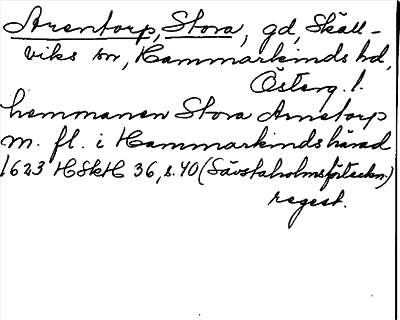 Arentorp, Stora, gd, Skäll-
viks sn, Hammarkinds hd,
Österg. l.
hemmanen Stora Arnetorp
m. fl. i Hammarkinds härad
1623 HSkH 36, s. 40 (Sävstaholmsförteckn.)
regest.